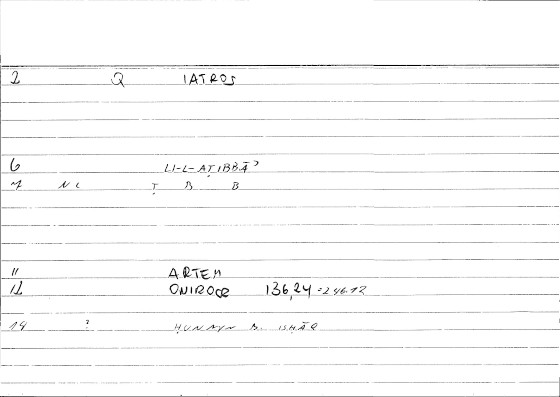 2 Q IATROS
6 LI-L-AṬIBBĀʾ
7 N L Ṭ B B
11 ARTEM
12 ONIROCR 136,24 = 246.12
14 ? ḤUNAYN B. ISḤĀQ